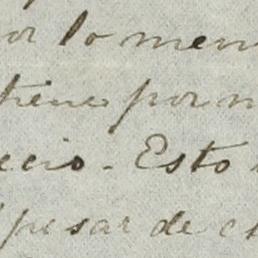 por lo men
tienes por m
ecio. Esto
pesar de es